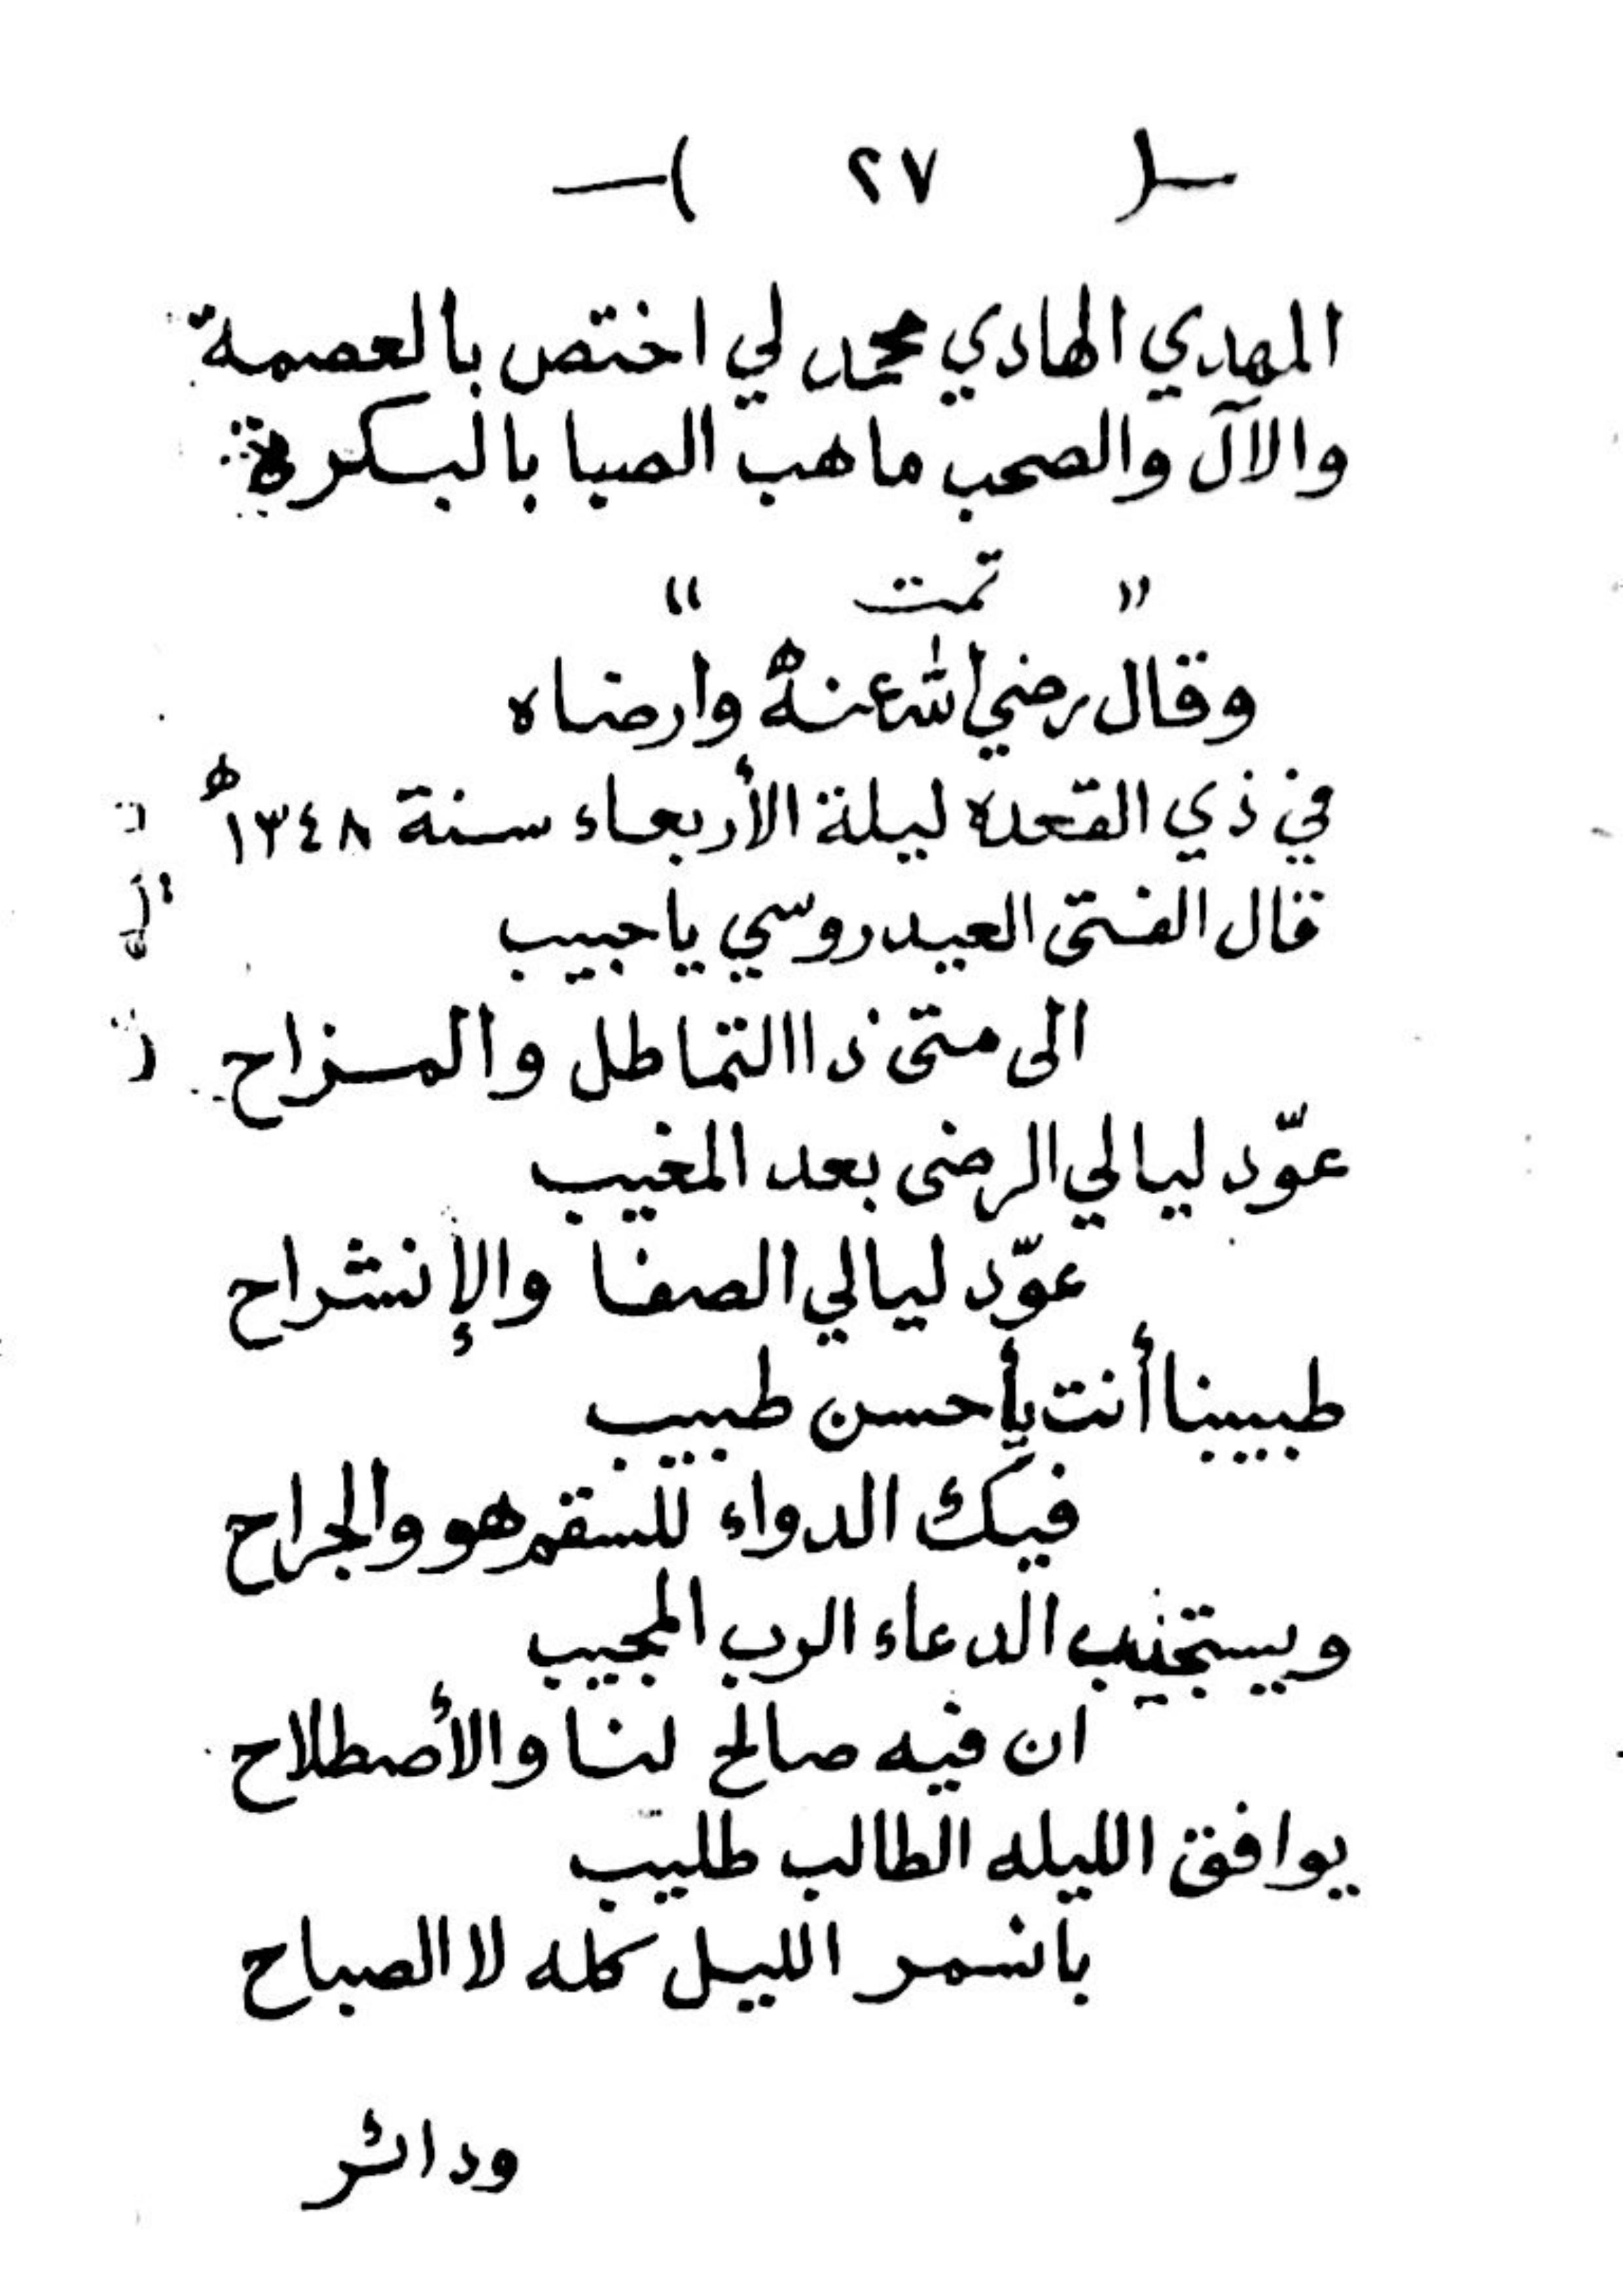 —( ٢٧ )—
المهدي الهادي محمد لي اختص بالعصمة
والآل والصحب ماهب الصبا بالبكرة
" تمت "
وقال رضي الله عنه وارضاه
في ذي القعده ليلة الأربعاء سنة ١٣٤٨ھ
قال الفتى العيدروسي ياحبيب
الى متى ذا التماطل والمزاح
عوّد ليالي الرضى بعد المغيب
عوّد ليالي الصفا والإنشراح
طبيبنا أنت يأحسن طبيب
فيك الدواء للسقم هو والجراح
ويستجيب الدعاء الرب المجيب
ان فيه صالح لنا والأصطلاح
يوافق الليله الطالب طليب
بانسمر الليل كله لا الصباح
ودائر